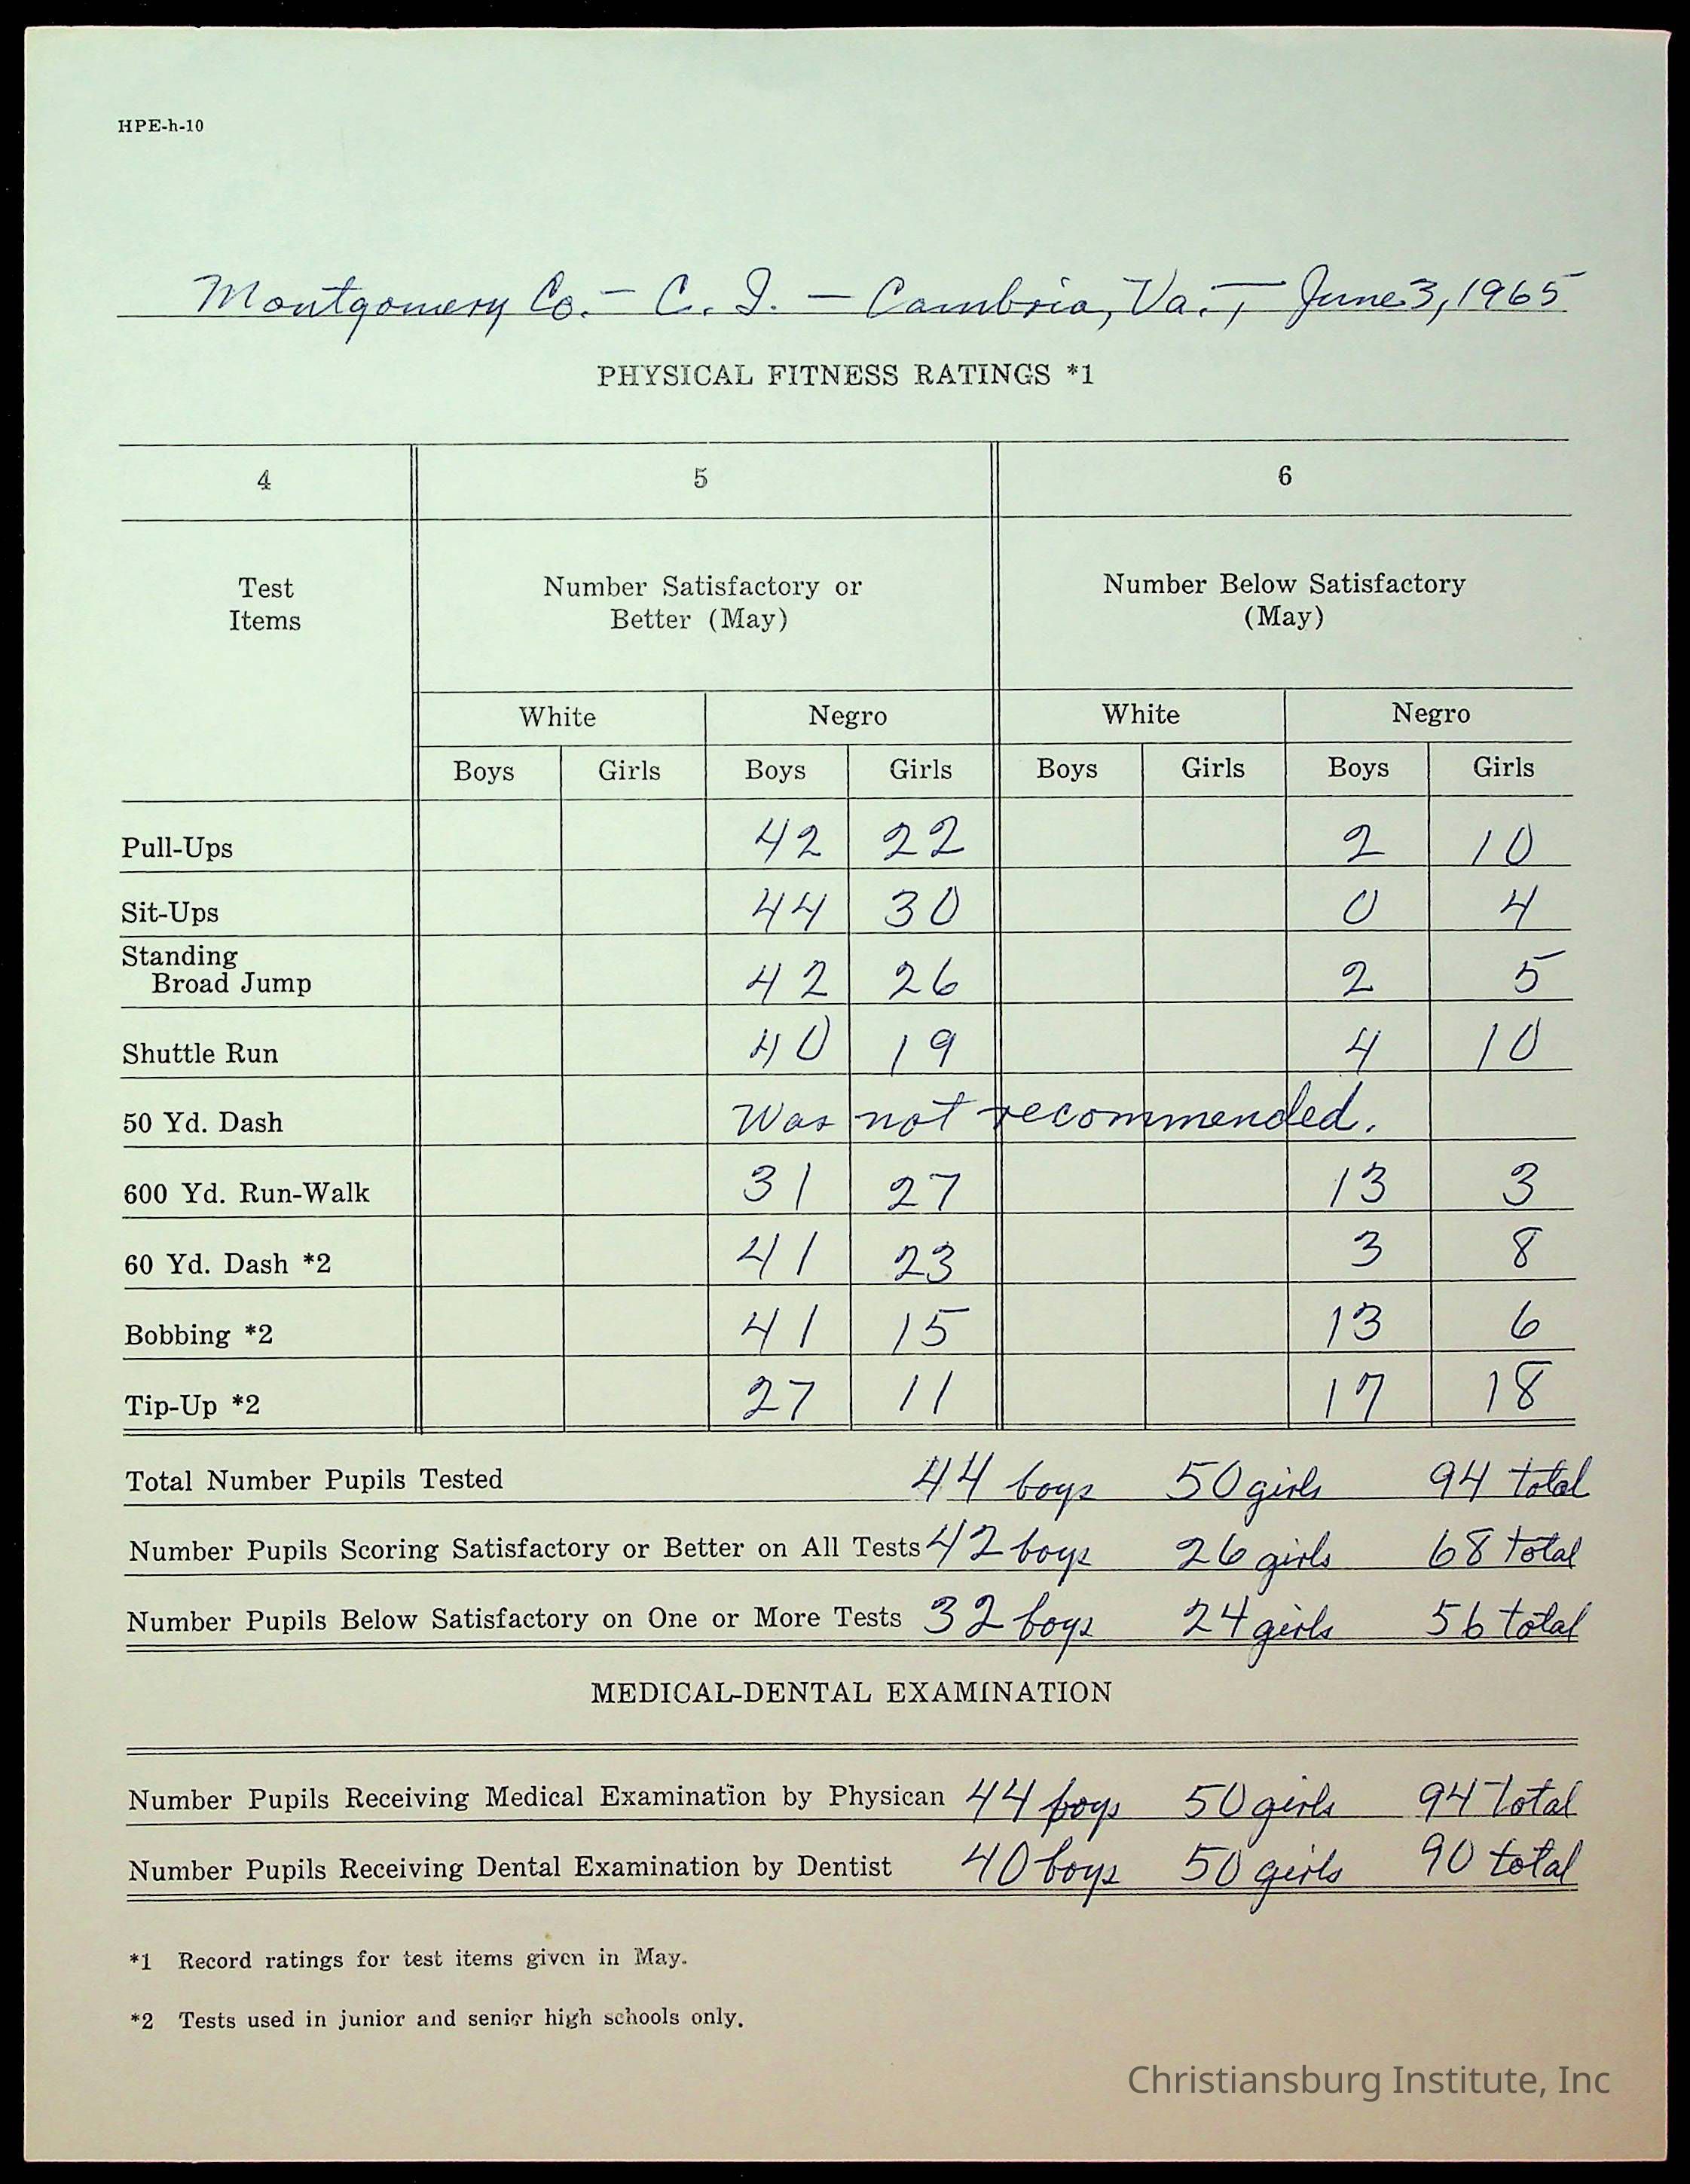 HPE-h-10
Montgomery Co. - C. I. - Cambria, Va., - June 3, 1965
PHYSICAL FITNESS RATINGS *1
4 5 6
Test Items Number Satisfactory or Better (May) Number Below Satisfactory (May)
White Negro White Negro
Boys Girls Boys Girls Boys Girls Boys Girls
Pull-Ups 42 22 2 10
Sit-Ups 44 30 0 4
Standing
Broad Jump 42 26 2 5
Shuttle Run 40 19 4 10
50 Yd. Dash Was not recommended.
600 Yd. Run-Walk 31 27 13 3
60 Yd. Dash *2 41 23 3 8
Bobbing *2 41 15 13 6
Tip-Up *2 27 11 17 18
Total Number Pupils Tested 44 boys 50 girls 94 total
Number Pupils Scoring Satisfactory or Better on All Tests 42 boys 26 girls 68 total
Number Pupils Below Satisfactory on One or More Tests 32 boys 24 girls 56 total
MEDICAL-DENTAL EXAMINATION
Number Pupils Receiving Medical Examination by Physican 44 boys 50 girls 94 total
Number Pupils Receiving Dental Examination by Dentist 40 boys 50 girls 90 total
*1 Record ratings for test items given in May.
*2 Tests used in junior and senior high schools only.
Christiansburg Institute, Inc